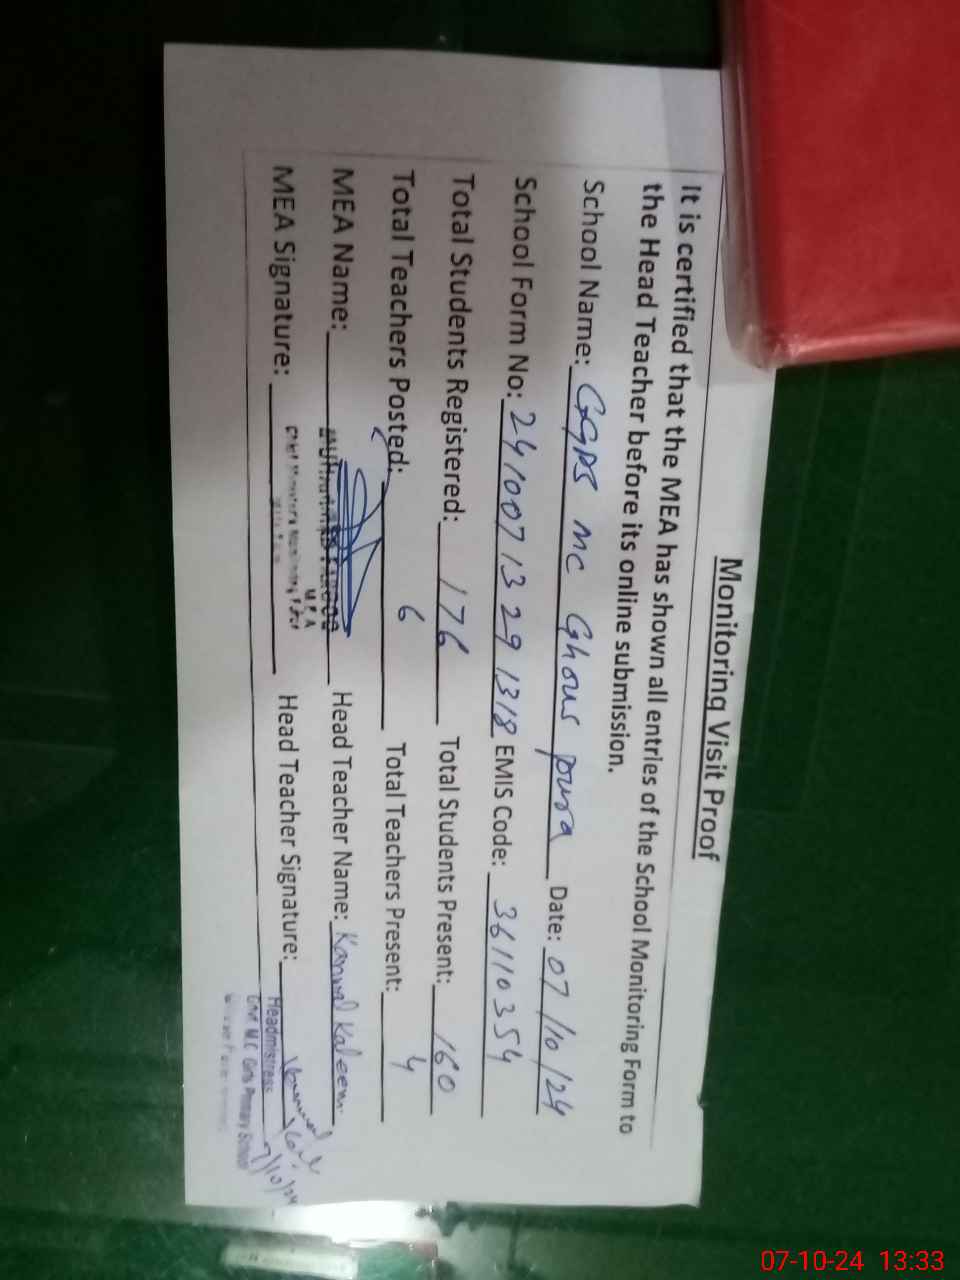 Monitoring Visit Proof
It is certified that the MEA has shown all entries of the School Monitoring Form to
the Head Teacher before its online submission.
School Name: GGPS MC Ghous pura Date: 07/10/24
School Form No: 24100713291318 EMIS Code: 36110354
Total Students Registered: 176 Total Students Present: 160
Total Teachers Posted: 6 Total Teachers Present: 4
MEA Name: Head Teacher Name: Kanwal Kaleem
M.E.A
MEA Signature: Head Teacher Signature:
7/10/24
Headmistress
Govt M.C Girls Primary School
07-10-24 13:33